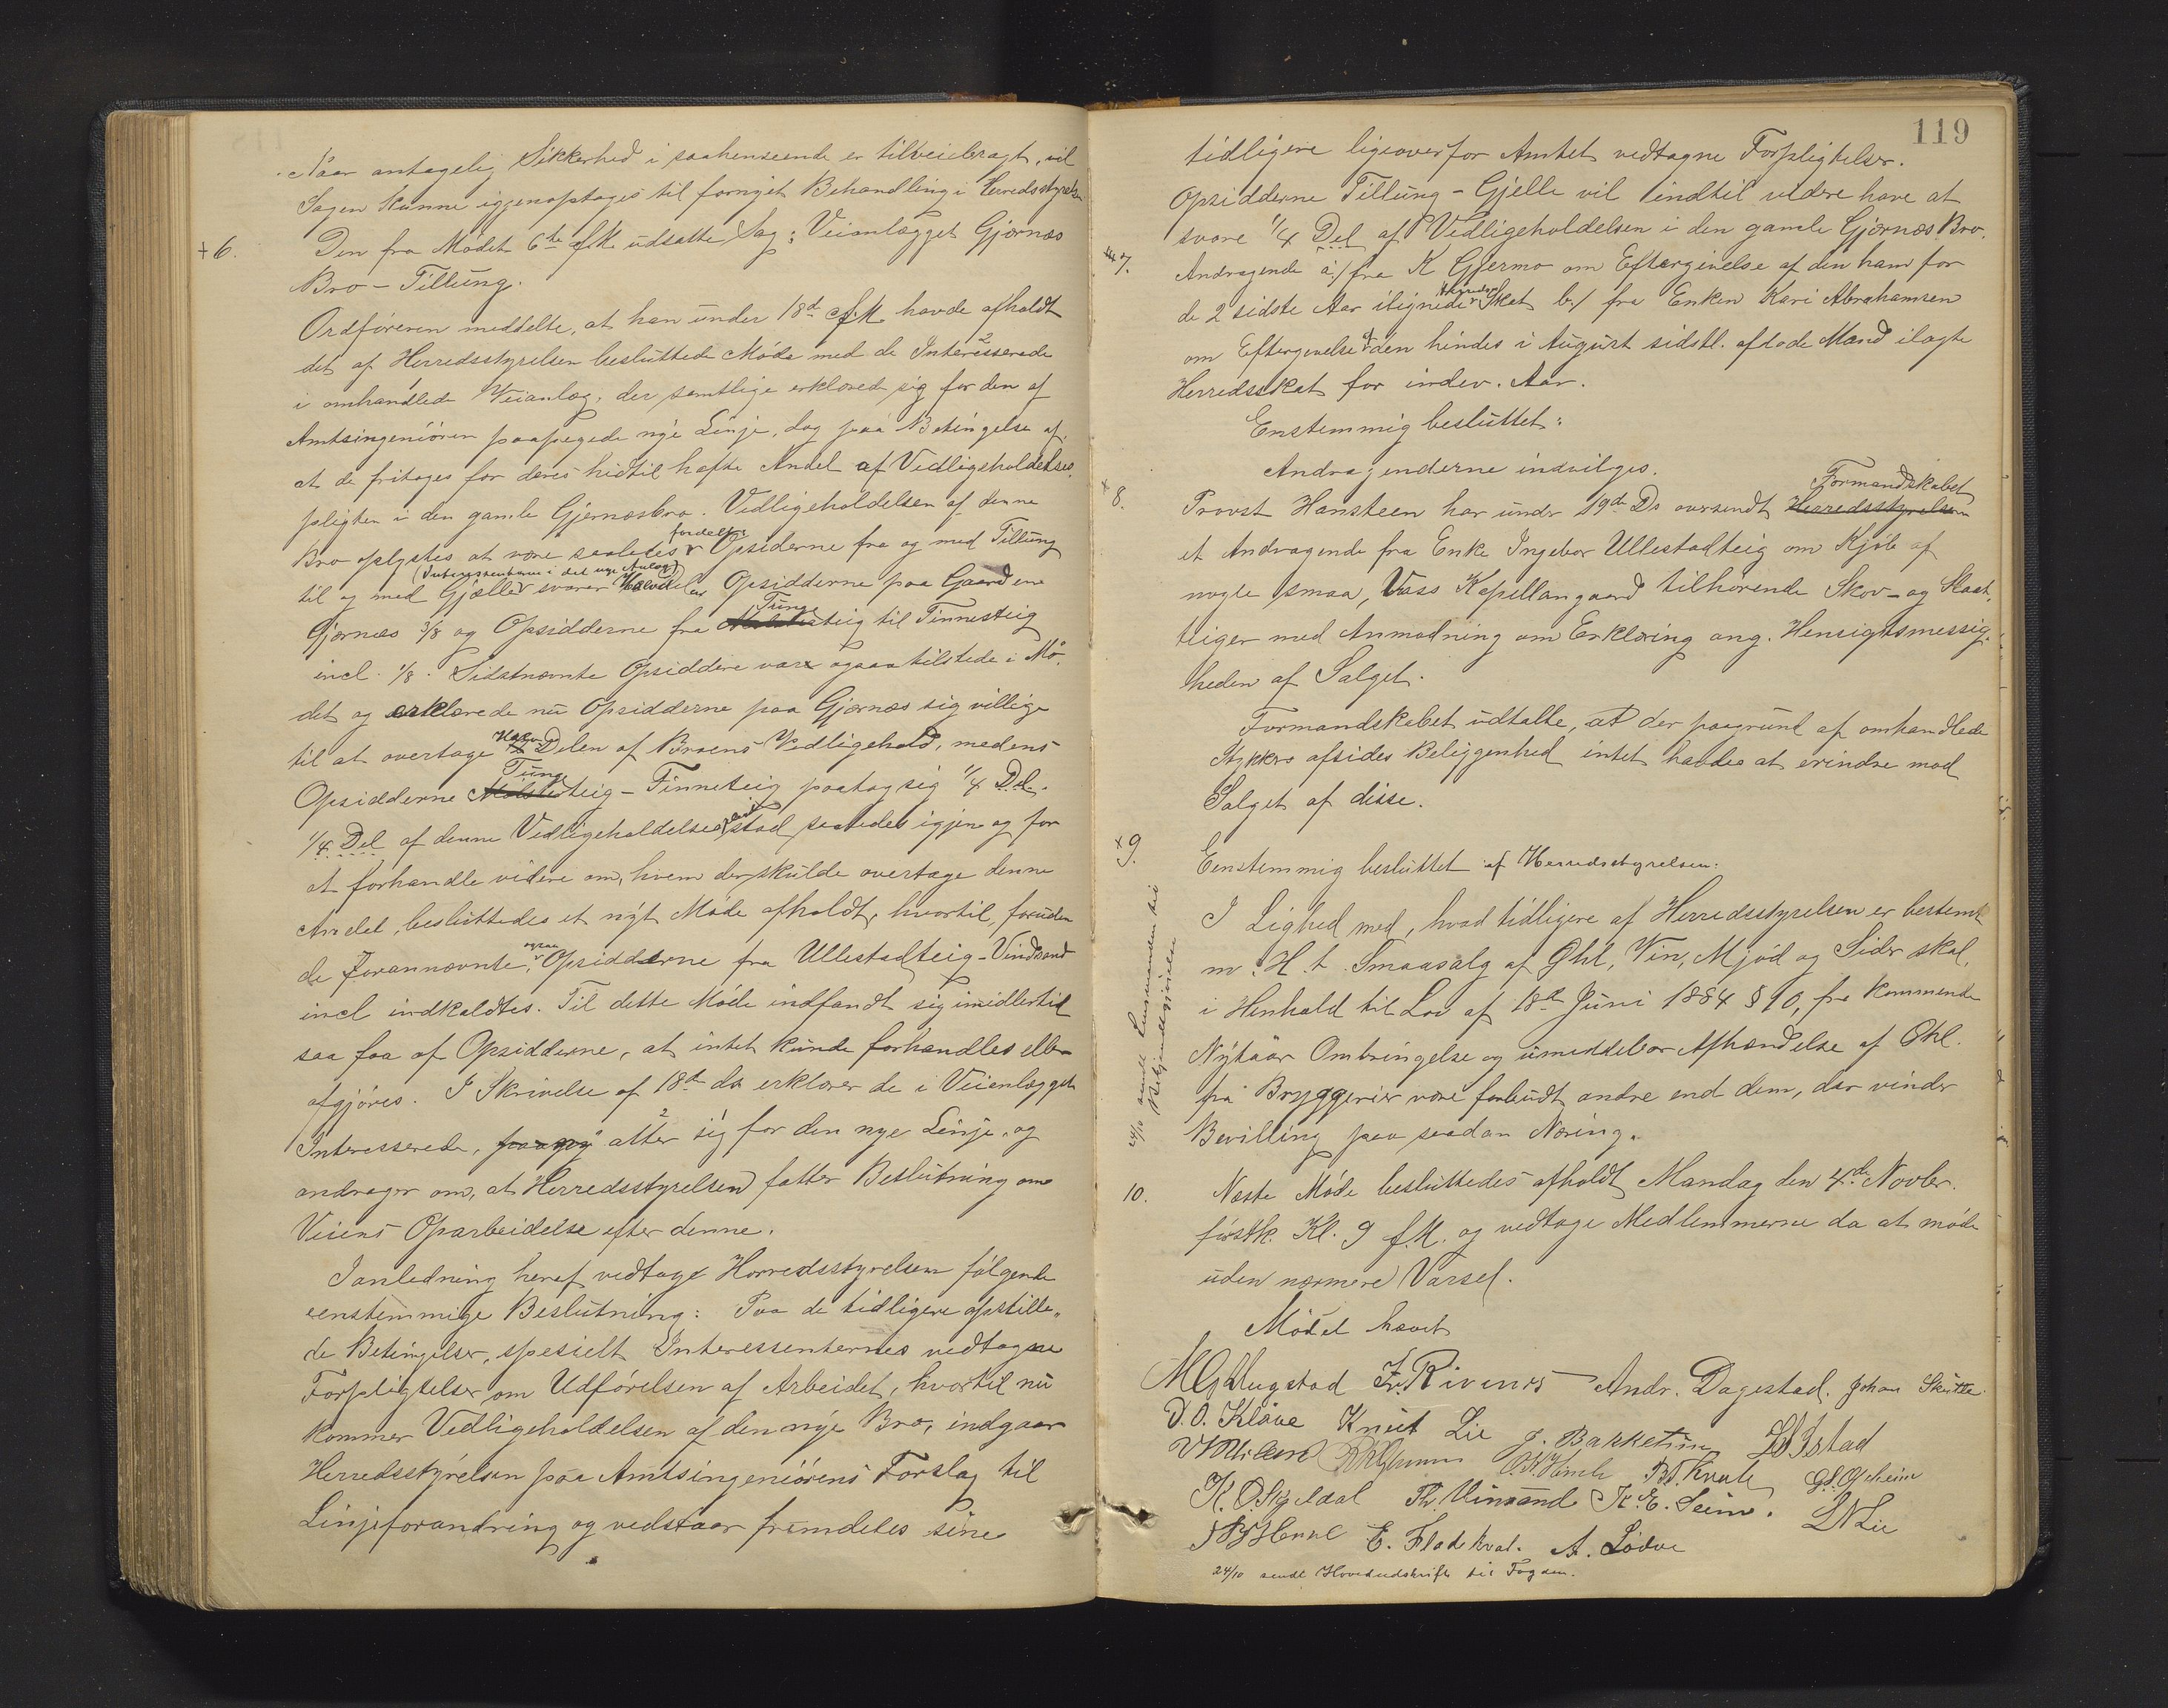 Naar antagelig Sikkerhed i saahenseende er tilveiebragt, vil
Sagen kunne igjenoptages til fornyet Behandling i Herredsstyrelsen
+ 6. Den fra Mødet 6te f.M. udsatte Sag: Veianlægget Gjernæs
Bro - Tillung.
Ordføreren meddelte, at han under 18de f.M. havde afholdt
det af Herredsstyrelsen besluttede Møde med de Interesserede
i omhandlede Veianlæg, der samtlige erklærede sig for den af
Amtsingeniøren paapegede nye Linje, dog paa Betingelse af,
at de fritages for deres hidtil hafte Andel af Vedligeholdelses
pligten i den gamle Gjernæsbro. Vedligeholdelsen af denne
Bro oplystes at være saaledes fordelt: Opsiderne fra og med Tillung
til og med Gjelle (Interessenterne i det nye Anlæg) svarer Halvdelen Opsidderne paa Gaardene
Gjernæs 3/8 og Opsidderne fra Tungeteig til Finnesteig
incl. 1/8. Sidstnævnte Opsiddere vare ogsaa tilstede i Mø-
det og erklærede nu Opsidderne paa Gjernæs sig villige
til at overtage Halv Delen af Broens Vedligehold, medens
Opsidderne Tungeteig - Finneteig paatog sig 1/4 Del.
1/4 Del af denne Vedligeholdelse stod saaledes igjen og for
at forhandle videre om, hvem der skulde overtage denne
Andel, besluttedes et nyt Møde afholdt, hvortil, foruden
de forannævnte, ogsaa Opsidderne fra Ullestadteig - Vindsand
incl indkaldtes. Til dette Møde indfandt sig imidlertid
saa faa af Opsidderne, at intet kunde forhandles eller
afgjøres. I Skrivelse af 18de ds erklærer de i Veianlægget
Interesserede, paa ny atter sig for den nye Linje, og
andrager om, at Herredsstyrelsen fatter Beslutning om
Veiens Oparbeidelse efter denne.
I anledning heraf vedtoges Herredsstyrelsen følgende
eenstemmige Beslutning: Paa de tidligere opstille-
de Betingelser, spesielt Interessenternes vedtagne
Forpligtelser om Udførelsen af Arbeidet, hvortil nu
kommer Vedligeholdelsen af den nye Bro, indgaar
Herredsstyrelsen paa Amtsingeniørens Forslag til
Linjeforandring og vedstaar fremdeles sine
119
tidligere ligeoverfor Amtet vedtagne Forpligtelser.
Opsidderne Tillung - Gjelle vil indtil videre have at
svare 1/4 Del af Vedligeholdelsen i den gamle Gjernæs Bro.
+ 7. Andragende a/ fra K Gjermo om Eftergivelse af den ham for
de 2 sidste Aar ilignede Skat b/ fra Enken Kari Abrahamsen
om Eftergivelse af den hendes i August sidstl. afdøde Mand ilagte
Herredsskat for indev. Aar.
Enstemmig besluttet:
Andragenderne indvilges.
+ 8. Provst Hansteen har under 19de Ds oversendt Herredsstyrelsen Formandskabet
et Andragende fra Enke Ingebor Ullestadteig om Kjøb af
nogle smaa, Voss Kapellangaard tilhørende Skov- og Slaat-
teiger med Anmodning om Erklæring ang. Hensigtsmessig-
heden af Salget.
Formandskabet udtalte, at der paagrund af omhandlede
Stykkers afsides Beliggenhed intet havdes at erindre mod
Salget af disse.
+ 9. Eenstemmig besluttet af Herredsstyrelsen:
I Lighed med, hvad tidligere af Herredsstyrelsen er bestemt
m. H. t. Smaasalg af Øhl, Vin, Mjød og Sider skal,
i Henhold til Lov af 18de Juni 1884 § 10, fra kommende
Nytaar Ombringelse og umiddelbar Afhændelse af Øhl
fra Bryggerier være forbudt andre end dem, der vinder
Bevilling paa saadan Næring.
24/10 sendt Lensmanden til Bekjendtgjørelse
10. Næste Møde besluttedes afholdt Mandag den 4de Novbr.
førstk. Kl. 9 f.M. og vedtoge Medlemmerne da at møde
uden nærmere Varsel.
Mødet hævet
Rivenæs Andr. Dagestad. Johan Skutle
D. O. Kløve Knut Lie J. Bakketun Istad
B. Kvale
K. O. Skjeldal Th. Vinsand K. E. Seim. Lie
E. Fladekval. A. Lødve
24/10 sendt Hovedudskrift til Fogden.